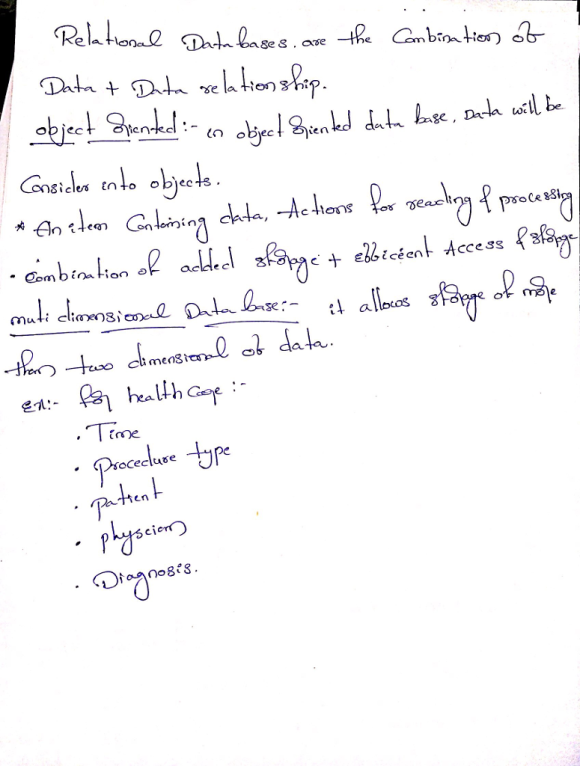 Relational Databases. are the Combination of
Data + Data relationship.
object Oriented :- in object Oriented data base, Data will be
Consider into objects.
* An item Containing data, Actions for reading & processing
• Combination of added storage + efficient Access & storage
muti dimensional Data base:- it allows storage of more
than two dimensional of data.
Ex:- for health care :-
. Time
• Procedure type
. patient
• physcian
. Diagnosis.